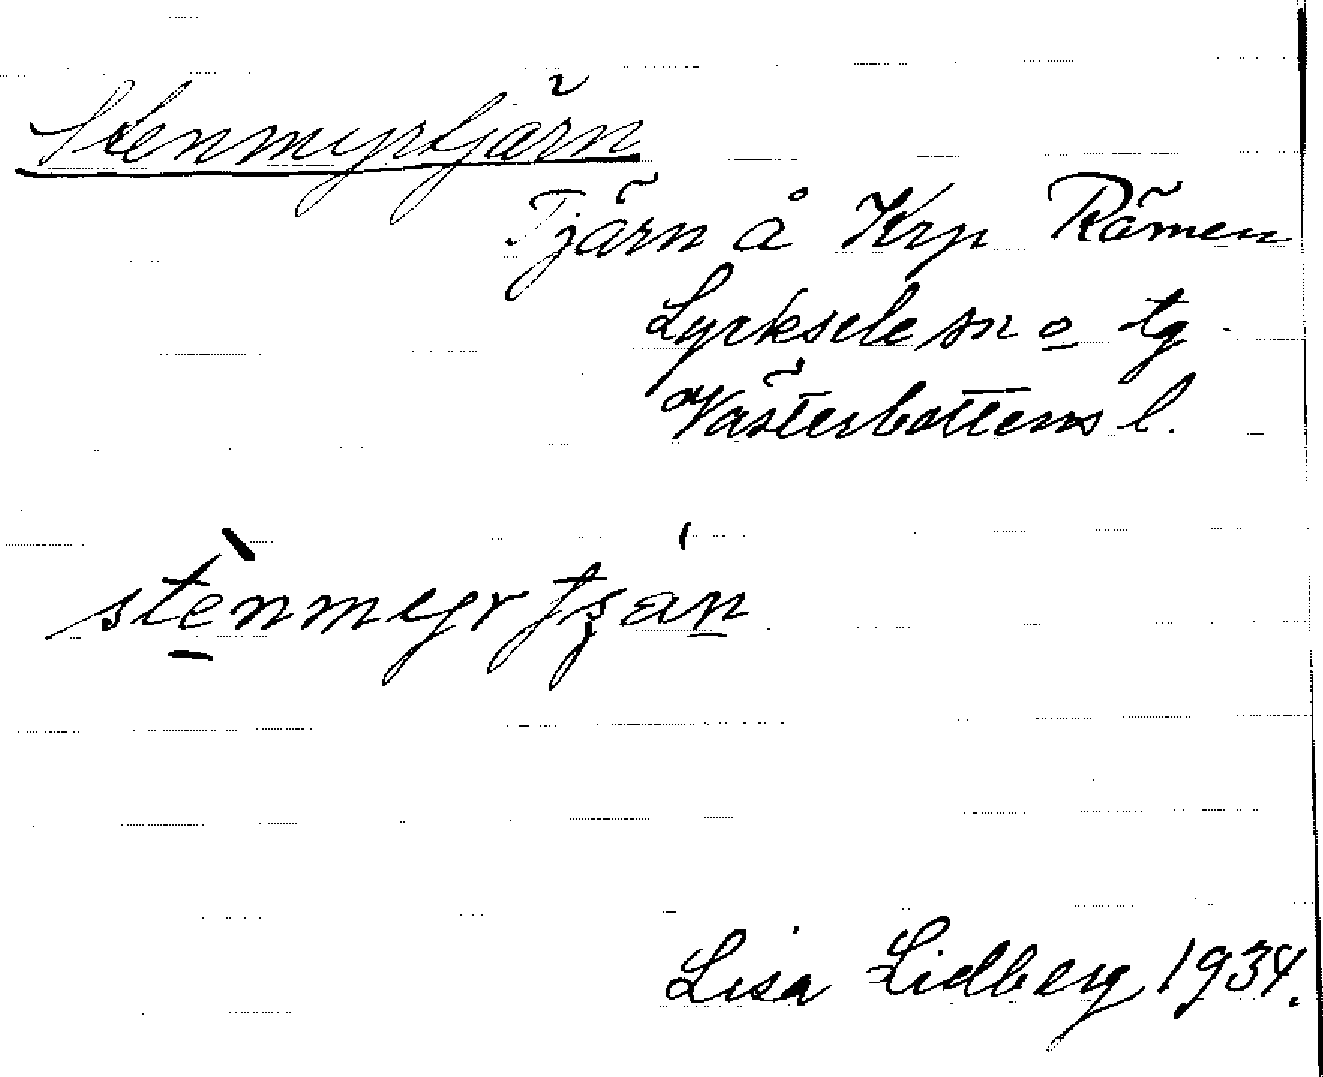 Stenmyrtjärn
Tjärn å Krp Råmen
Lycksele sn o tg
Västerbottens l.
stènmyrtján
Lisa Lidberg 1934.